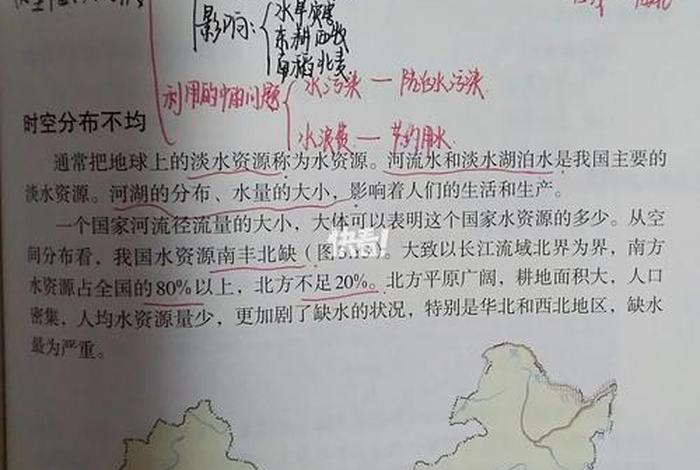 影响:
水旱灾害
东耕西牧
南稻北麦
利用的中的问题
水污染 — 防治水污染
水浪费 — 节约用水
时空分布不均
通常把地球上的淡水资源称为水资源。河流水和淡水湖泊水是我国主要的
淡水资源。河湖的分布、水量的大小，影响着人们的生活和生产。
一个国家河流径流量的大小，大体可以表明这个国家水资源的多少。从空
间分布看，我国水资源南丰北缺（图3.15）。大致以长江流域北界为界，南方
水资源占全国的80%以上，北方不足20%。北方平原广阔，耕地面积大，人口
密集，人均水资源量少，更加剧了缺水的状况，特别是华北和西北地区，缺水
最为严重。
快看!